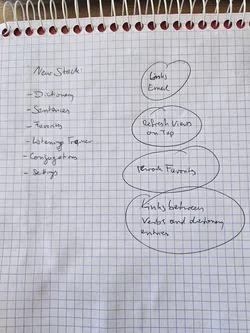 New Stack:
- Dictionary
- Sentences
- Favorites
- Listening Trainer
- Conjugation
- Settings
Links
Email
Refresh Views
on Tap
Rework Favorites
Links between
Verbs and dictionary
entries